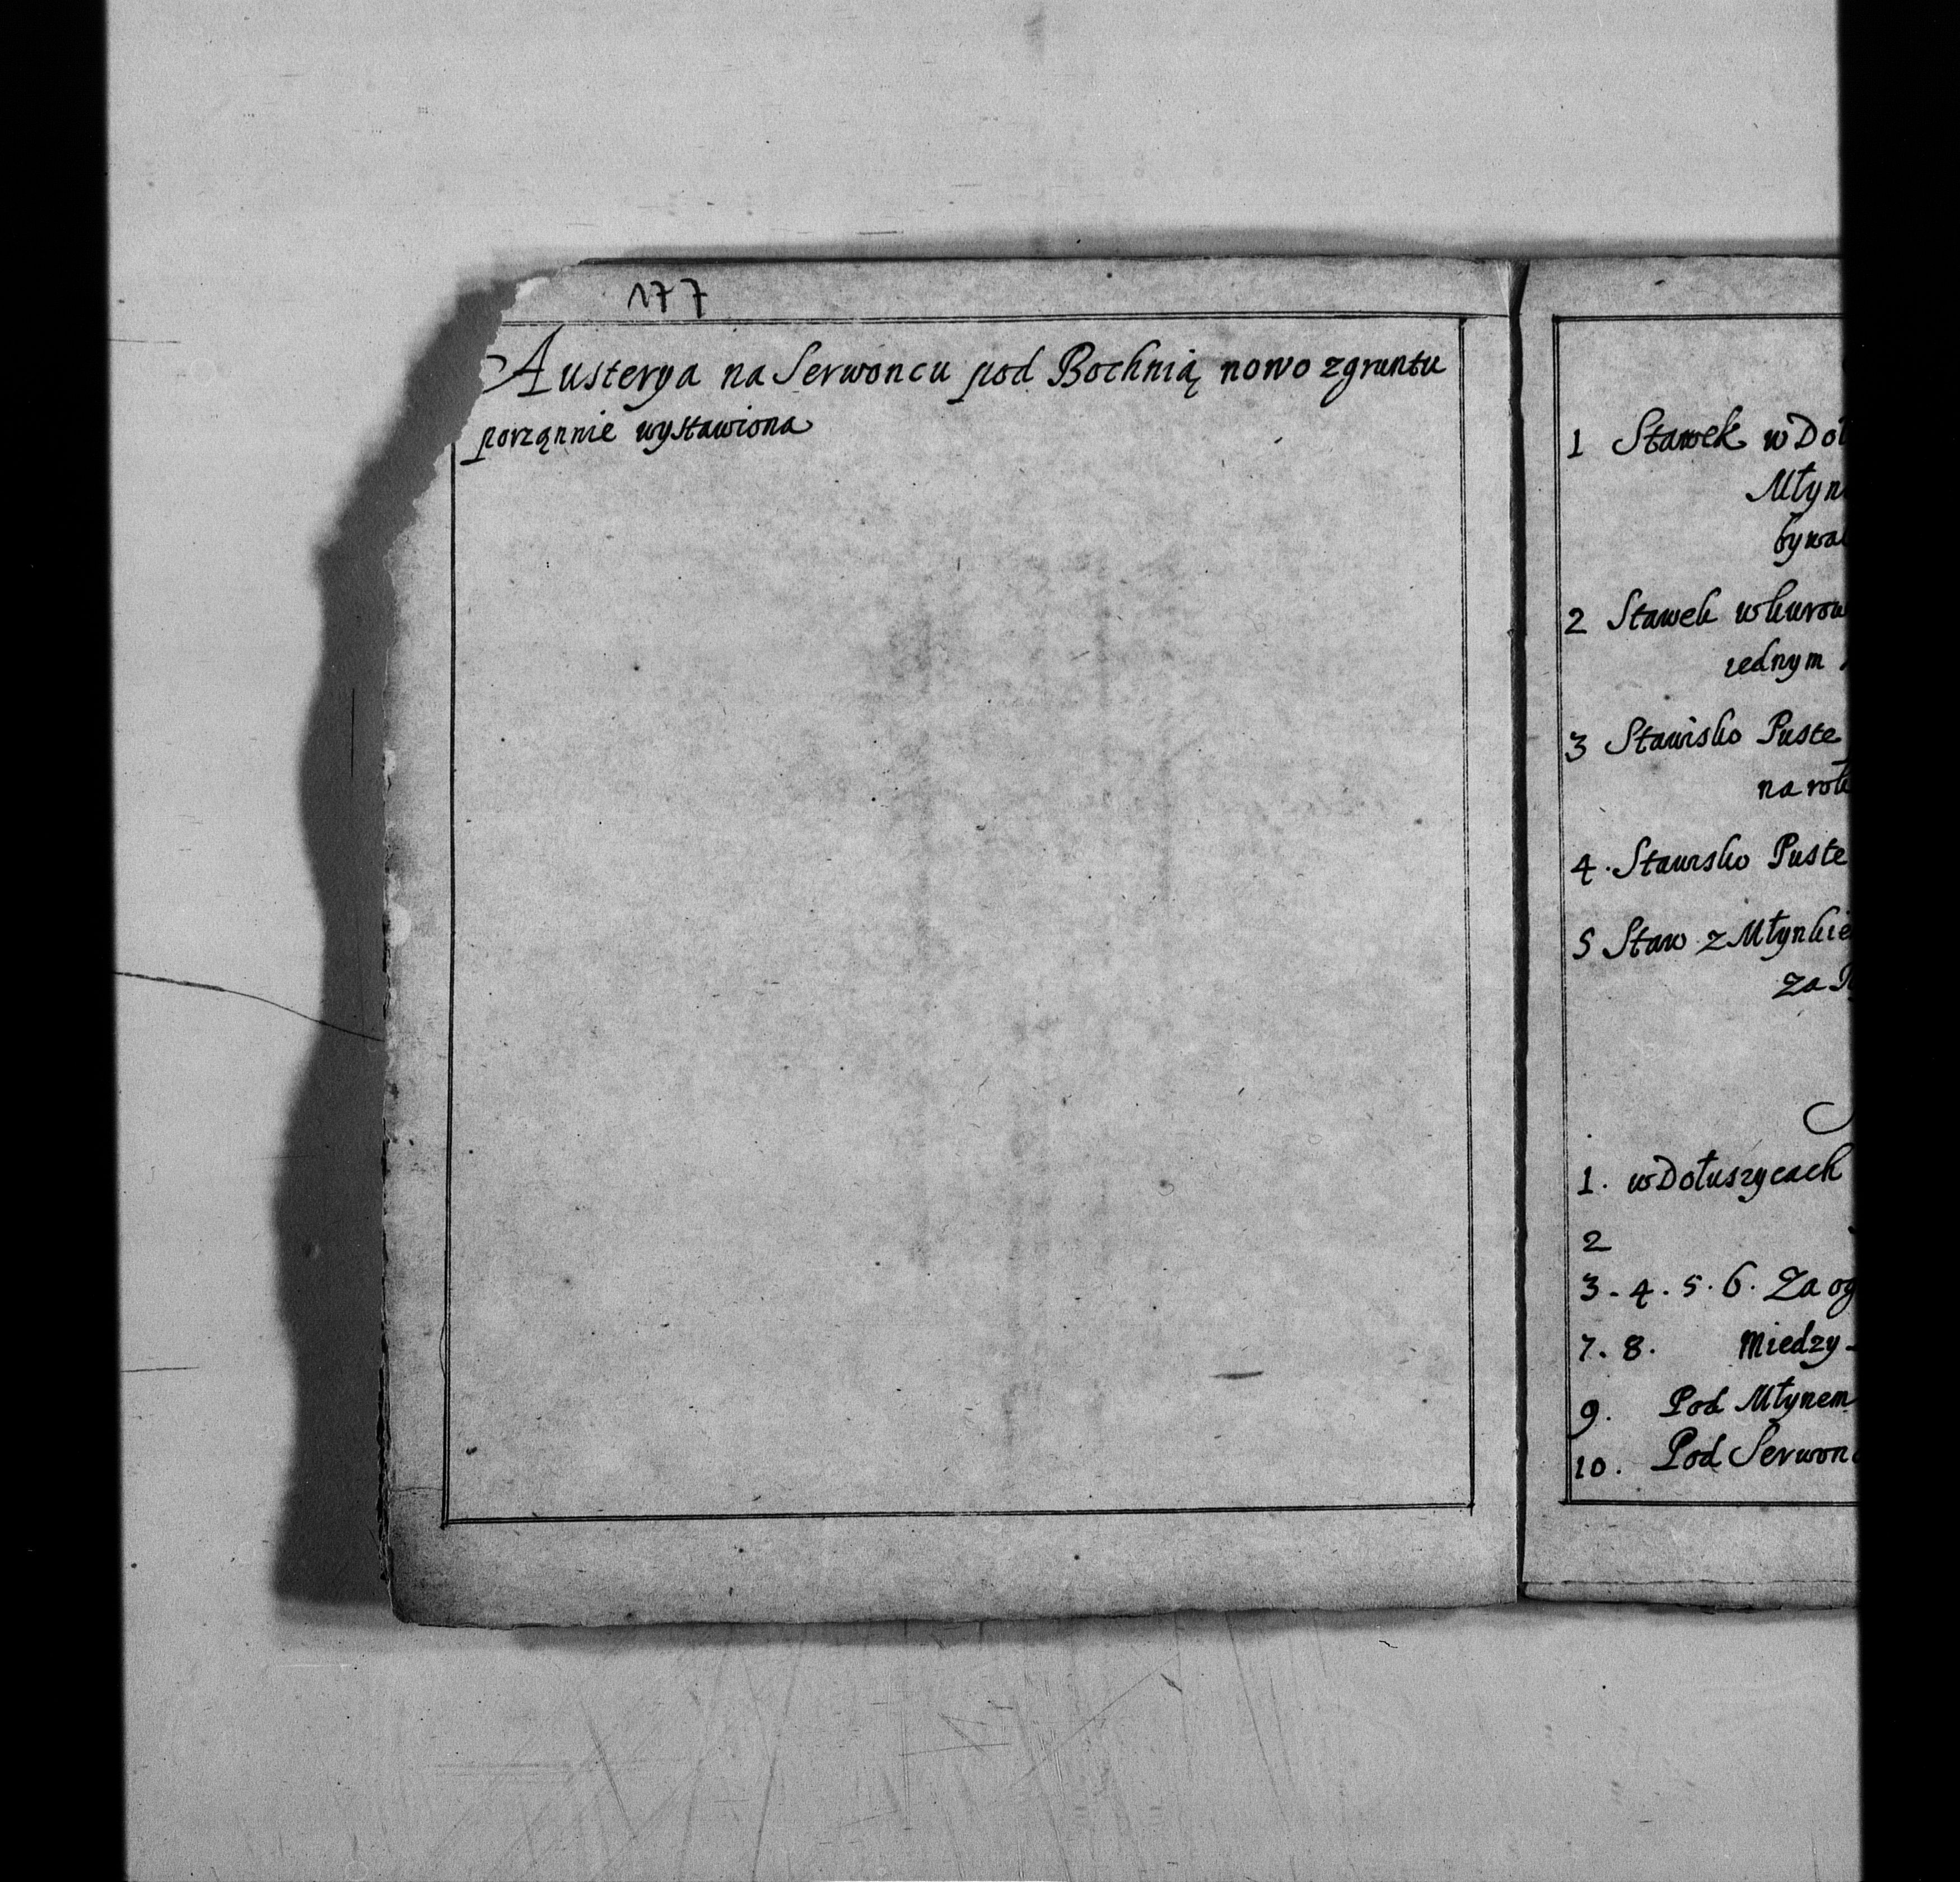 177
Austerya na Serwoncu pod Bochnią nowo zgruntu
porząnnie wystawiona
1 Stawek w Doł
Młyn
bywa
2 Stawek wkurow
iednym
3 Stawisko Puste
na rol
4. Stawisko Puste
5 Staw z Młynkie
za
1. w Dołuszycach
2
3. 4. 5. 6. Za og
7. 8. Miedzy
9. Pod Młynem
10. Pod Serwon